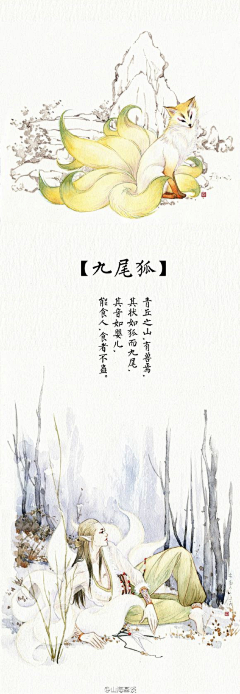 【九尾狐】
青丘之山，有兽焉，
其状如狐而九尾，
其音如婴儿，
能食人，食者不蛊。
@山海幕谈